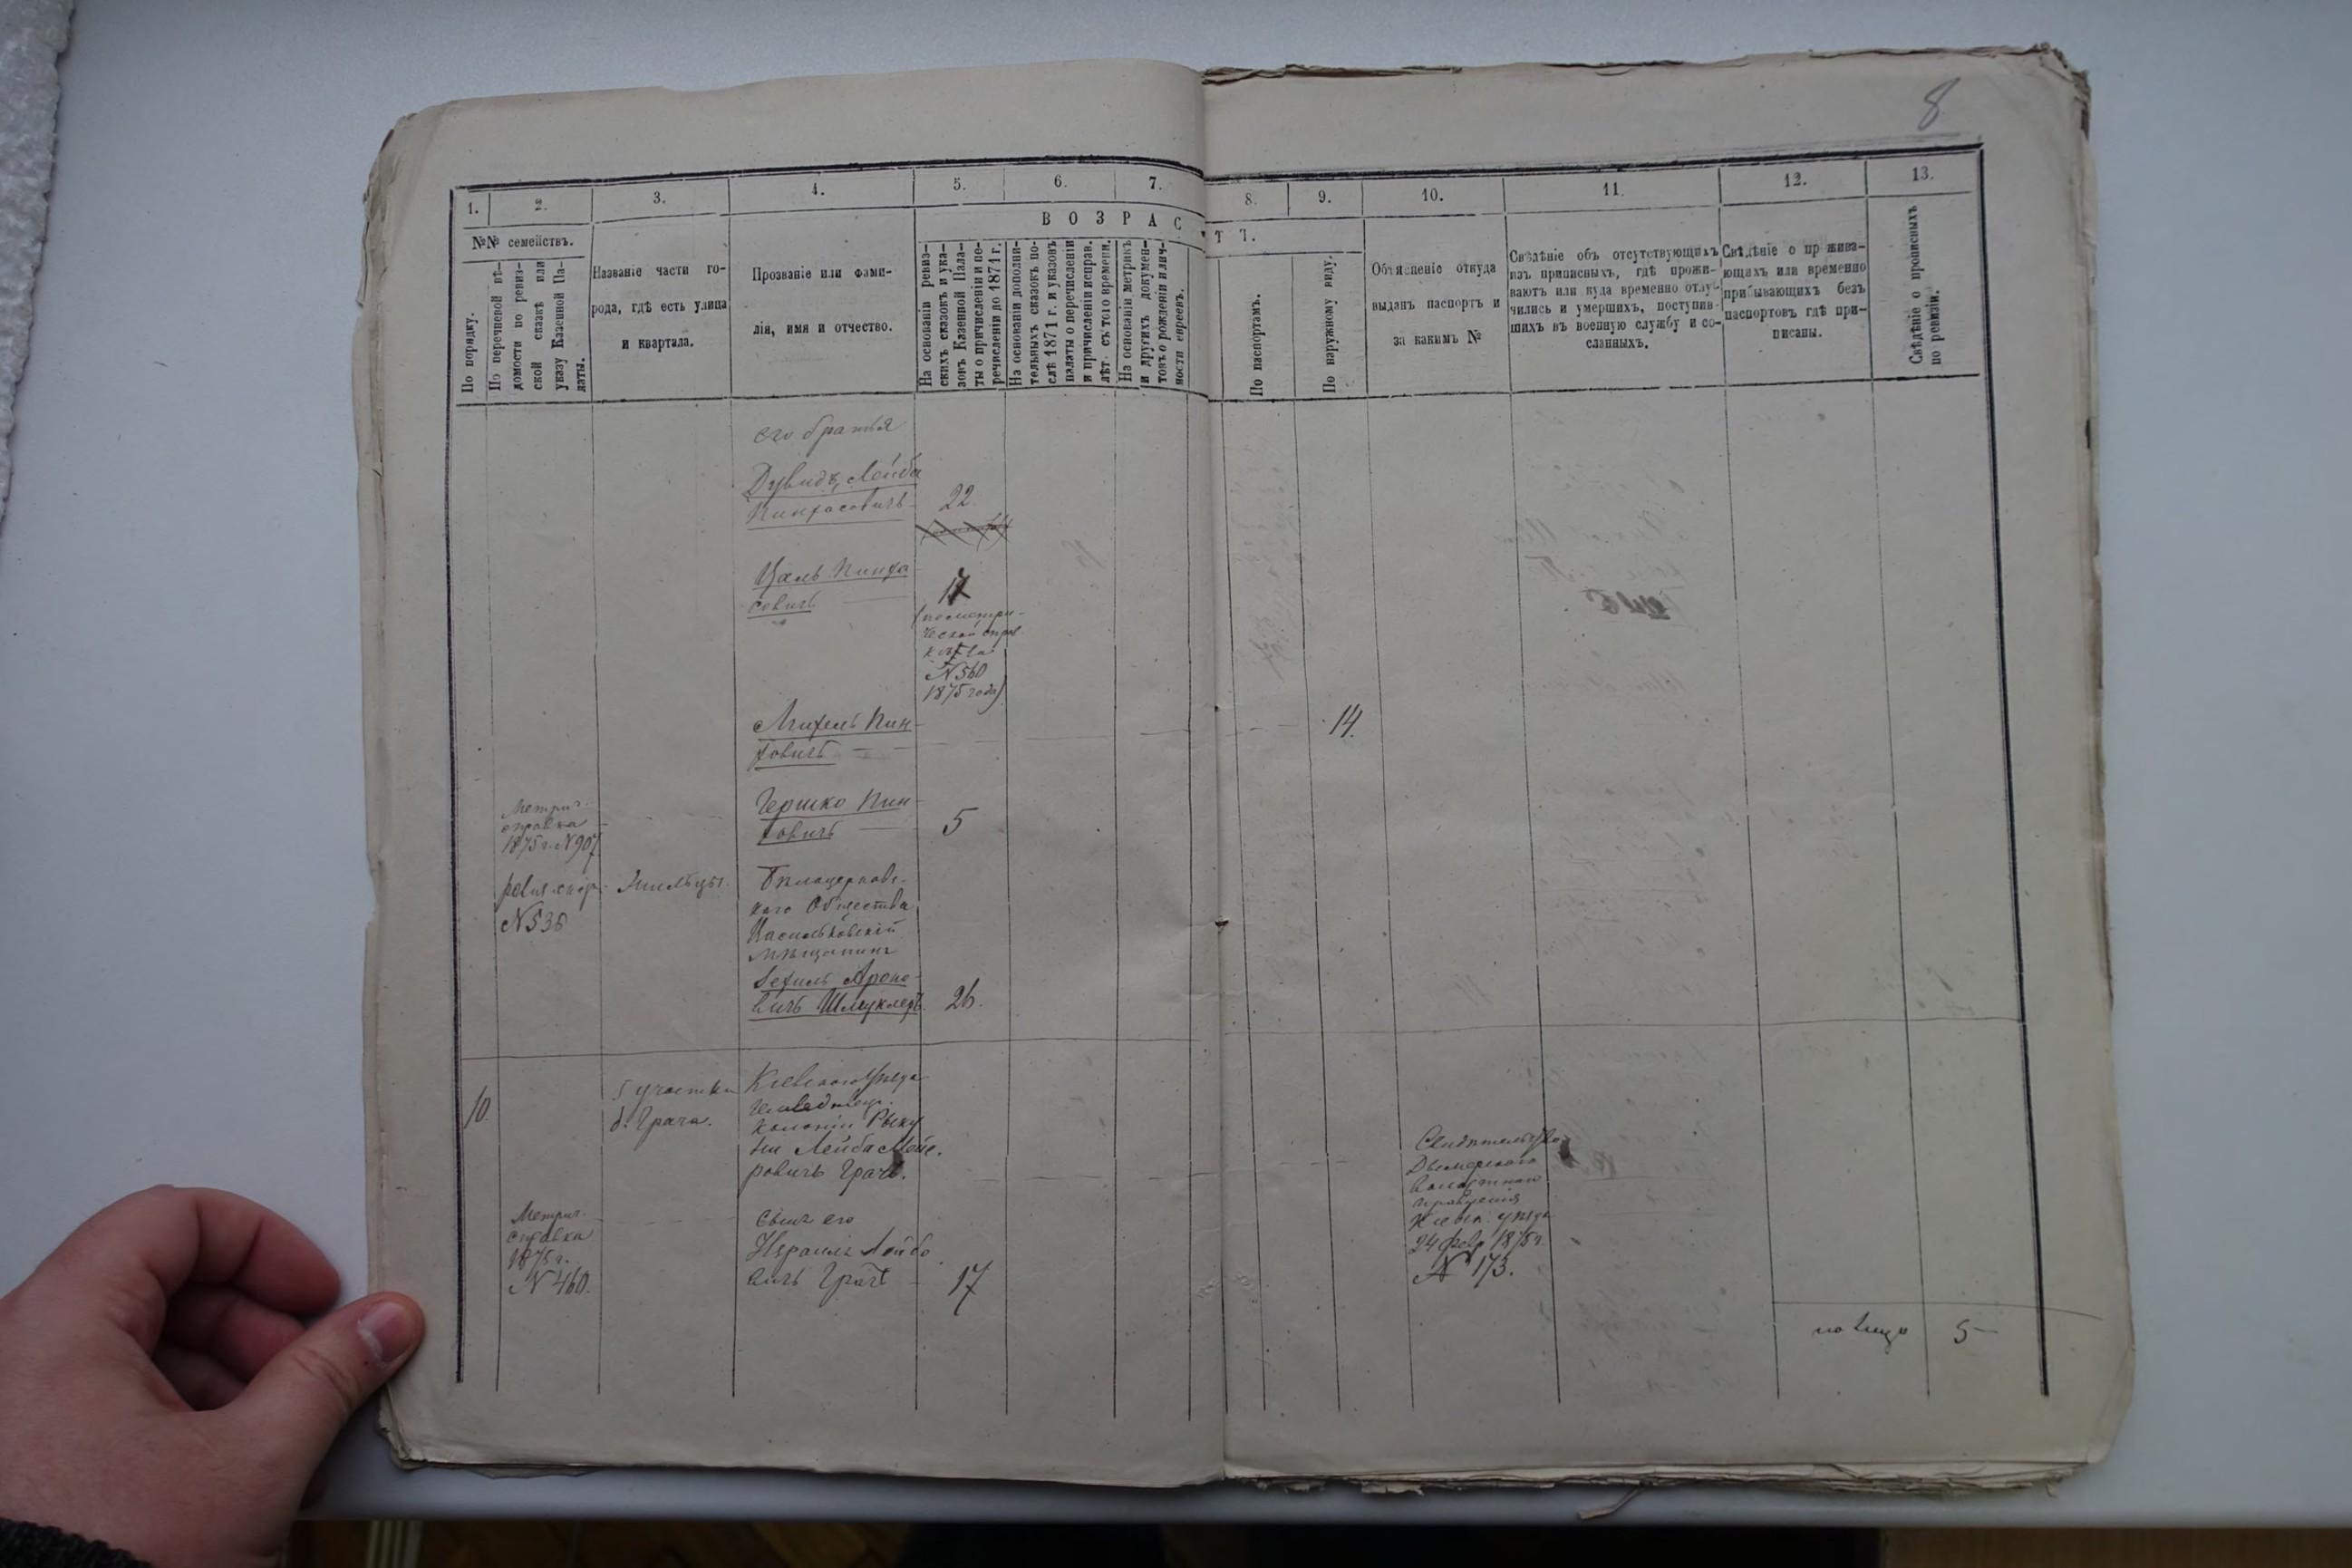 8
1.
2.
3.
4.
5.
6.
7.
8.
9.
10.
11.
12.
13.
№№ семействъ.
По порядку.
По перечневой вѣ-
домости по ревиз-
ской сказкѣ или
указу Казенной Па-
латы.
Названіе части го-
рода, гдѣ есть улица
и квартала.
Прозваніе или фами-
лія, имя и отчество.
ВОЗРАС
Т Ъ.
На основаніи ревиз-
скихъ сказокъ и ука-
зокъ Казенной Пала-
ты о причисленіи и пе-
речисленіи до 1871 г.
На основаніи дополни-
тельныхъ сказокъ по-
слѣ 1871 г. и указовъ
палаты о перечисленіи
и причисленіи исправ.
лѣт. съ того времени.
На основаніи метрикъ
и другихъ докумен-
товъ о рожденіи и лич-
ности евреевъ.
По паспортамъ.
По наружному виду.
Объясненіе откуда
выданъ паспортъ и
за какимъ №
Свѣдѣніе объ отсутствующихъ
изъ приписныхъ, гдѣ прожи-
ваютъ или куда временно отлу-
чились и умершихъ, поступив-
шихъ въ военную службу и со-
сланныхъ.
Свѣдѣніе о прожива-
ющихъ или временно
прибывающихъ безъ
паспортовъ гдѣ при-
писаны.
Свѣдѣніе о прописныхъ
по ревизіи.
его братья
Дувидъ, Лейба
Пинхасовичъ
22
Цаль Пинха
совичъ
17
(по метри-
ческой справ
кѣ за
№ 560
1875 года)
Михель Пин-
ховичъ
14.
Метрич.
справка
1875 г. № 907
Гершко Пин-
ховичъ
5
№ 535
Бѣлоцерковс-
каго Общества
Васильковскій
мѣщанинъ
Хехиль Ароно-
вичъ Шмуклеръ
26.
10.
5 участка
д. Грача.
Кіевскаго Уѣзда
колоніи Рыку
ни Лейба Мойе.
ровичъ Грачъ.
Свидѣтельство
Дымерскаго
Волостнаго
правленія
Кіевск. уѣзда
24 февр 1875 г.
№ 173.
Метрич.
справка
1875 г.
№ 460.
Сынъ его
Израиль Лейбо
вичъ Грачъ
17
по лицо
5